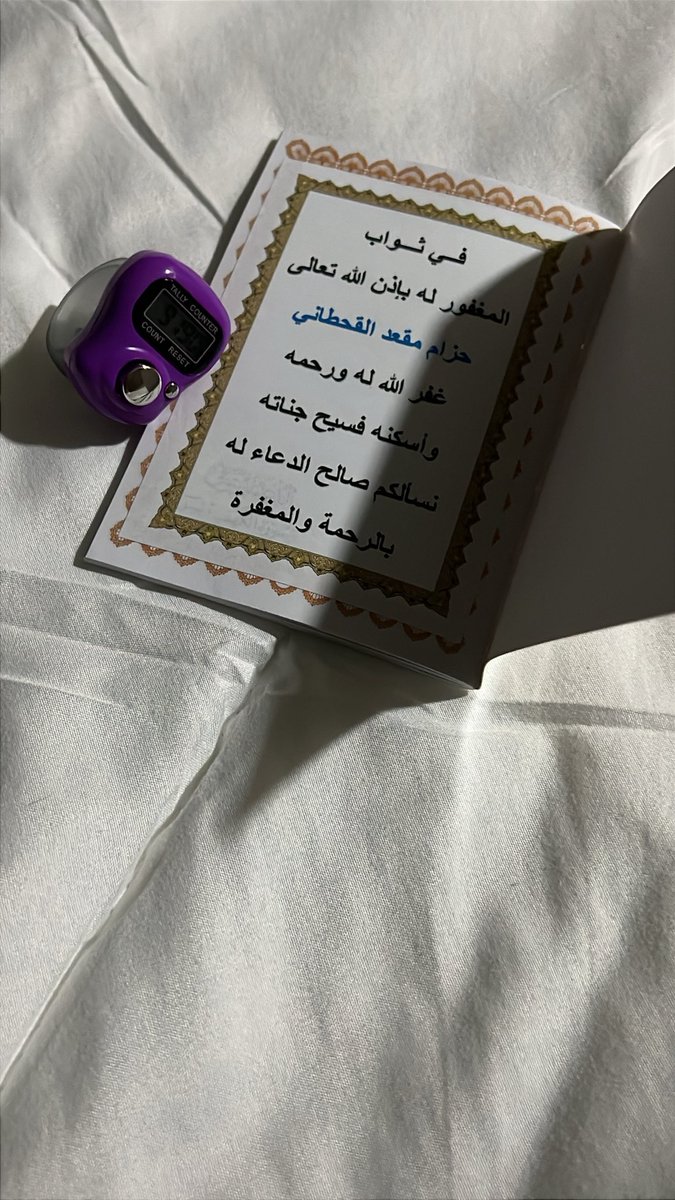 في ثواب
المغفور له بإذن الله تعالى
حزام مقعد القحطاني
غفر الله له ورحمه
وأسكنه فسيح جناته
نسألكم صالح الدعاء له
بالرحمة والمغفرة
TALLY COUNTER
COUNT RESET